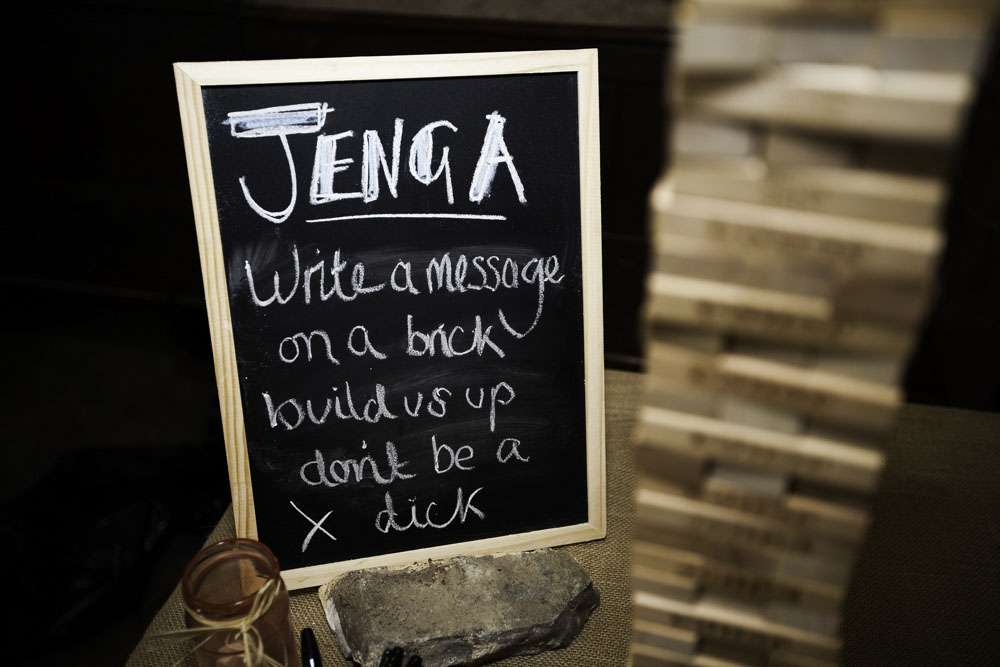 JENGA
Write a message
on a brick
build us up
don't be a
x dick